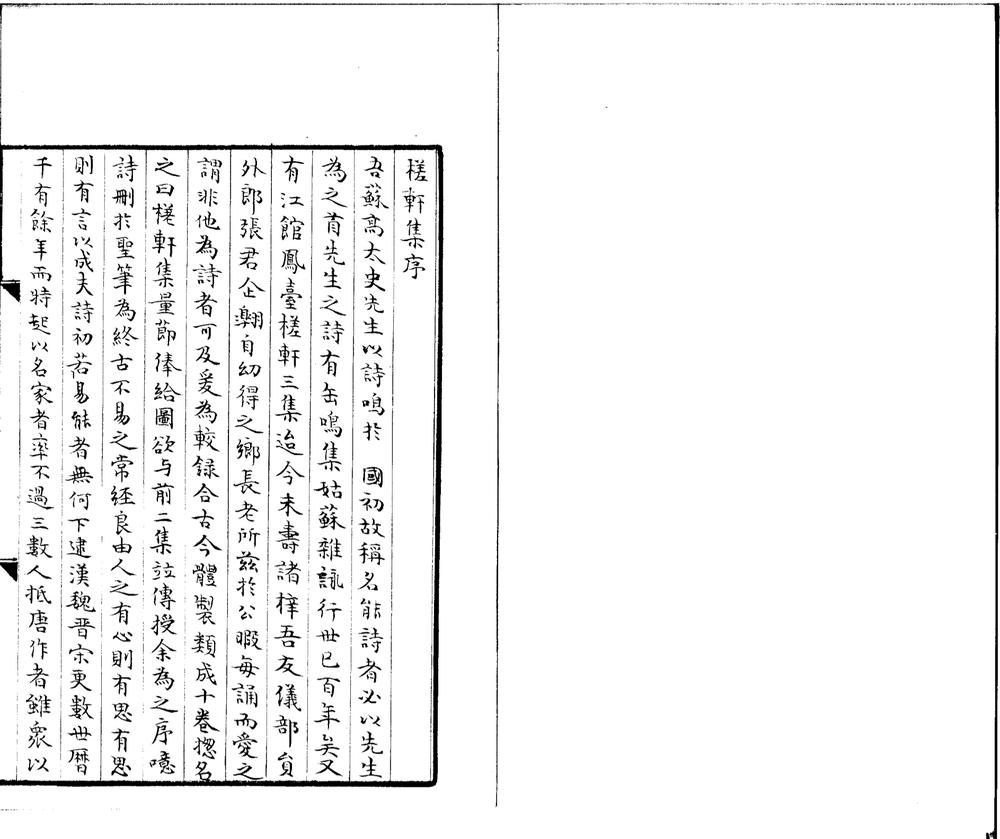 槎軒集序
吾蘇高太史先生以詩鳴於　國初故稱名能詩者必以先生
為之首先生之詩有缶鳴集姑蘇雜詠行世已百年矣又
有江館鳳臺槎軒三集迨今未壽諸梓吾友儀部員
外郎張君企翺自幼得之鄉長老所兹於公暇每誦而愛之
謂非他為詩者可及爰為較録合古今體製類成十卷揔名
之曰槎軒集量節俸給圖欲与前二集竝傳授余為之序噫
詩刪於聖筆為終古不易之常經良由人之有心則有思有思
則有言以成夫詩初若易能者無何下逮漢魏晋宋更數世曆
千有餘年而特起以名家者率不過三數人抵唐作者雖衆以